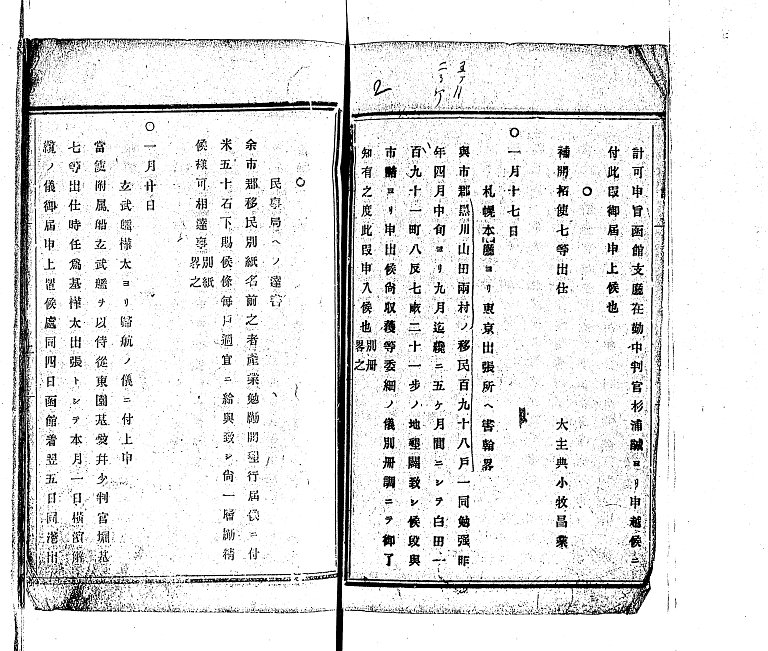 2
計可申旨函館支廳在勤中判官杉浦誠ヨリ申越候ニ
付此段御屆申上候也
○
大主典小牧昌業
補開拓使七等出仕
○一月十七日
札幌本廳ヨリ東京出張所ヘ書翰畧
與市郡黑川山田兩村ノ移民百九十八戸一同勉强昨
年四月中旬ヨリ九月迄纔ニ五ケ月間ニシテ白田一
百九十一町八反七畝二十一步ノ地墾闢致シ候段與
市詰ヨリ申出候尙收穫等委細ノ儀別册調ニテ御了
知有之度此段申入候也別册畧之
○
民事局ヘノ達書
余市郡移民別紙名前之者產業勉勵開墾行屆候ニ付
米五十石下賜候條每戸適宜ニ給與致シ尙一層勵精
候樣可相達事別紙畧之
○一月廿日
玄武艦樺太ヨリ歸航ノ儀ニ付上申
當使附属船玄武艦ヲ以侍從東園基愛幷少判官堀基
七等出仕時任爲基樺太出張トシテ本月一日橫濱解
纜ノ儀御屆申上置候處同四日函館着翌五日同港出